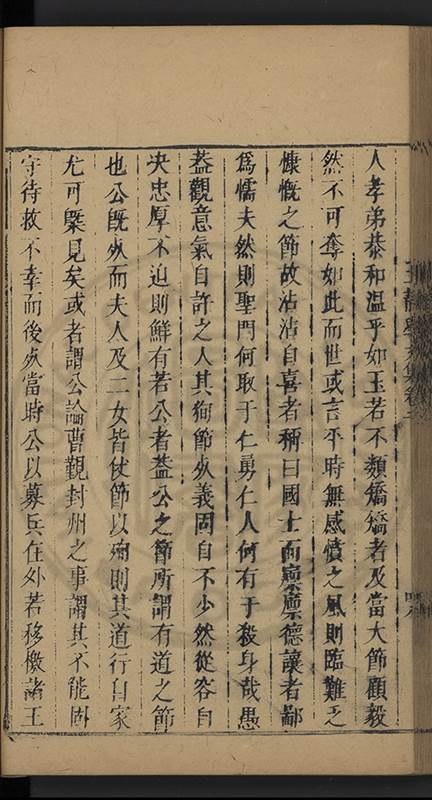 人孝弟恭和温乎如玉若不類矯矯者及當大節顧毅
然不可奪如此而世或言平時無感憤之風則臨難乏
慷慨之節故沾沾自喜者稱曰國士而廪廪德讓者鄙
爲懦夫然則聖門何取于仁勇仁人何有于殺身哉愚
葢觀意氣自許之人其狥節死義固自不少然從容自
决忠厚不迫則鮮有若公者葢公之節所謂有道之節
也公旣死而夫人及二女皆仗節以殉則其道行自家
尤可槩見矣或者謂公論曹覲封州之事謂其不能固
守待救不幸而後死當時公以募兵在外若移檄諸王